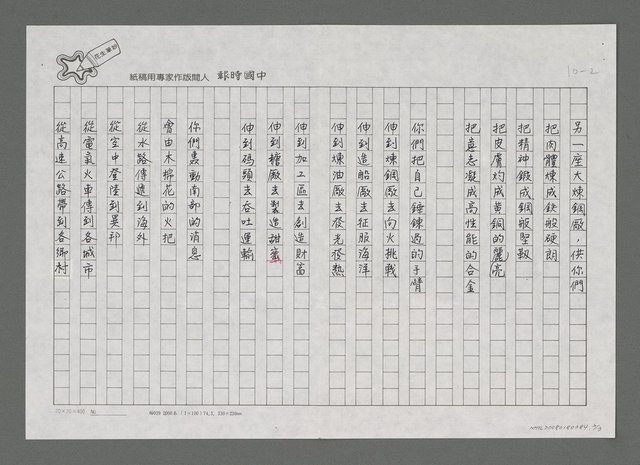 花生筆記
紙稿用專家作版間人 報時國中
10-2
另一座大煉鋼廠，供你們
把肉體煉成鉄般硬朗
把精神鍛成鋼般堅毅
把皮膚灼成黃銅的麗亮
把意志凝成高性能的合金
你們把自己錘鍊過的手臂
伸到煉鋼廠去向火挑戰
伸到造船廠去征服海洋
伸到煉油廠去發光發熱
伸到加工區去創造財富
伸到糖廠去製造甜蜜
伸到碼頭去吞吐運輸
你們轟動南部的消息
會由木棉花的火把
從水路傳遞到海外
從空中登陸到異邦
從電氣火車傳到各城市
從高速公路帶到各鄉村
20×20=400 No.